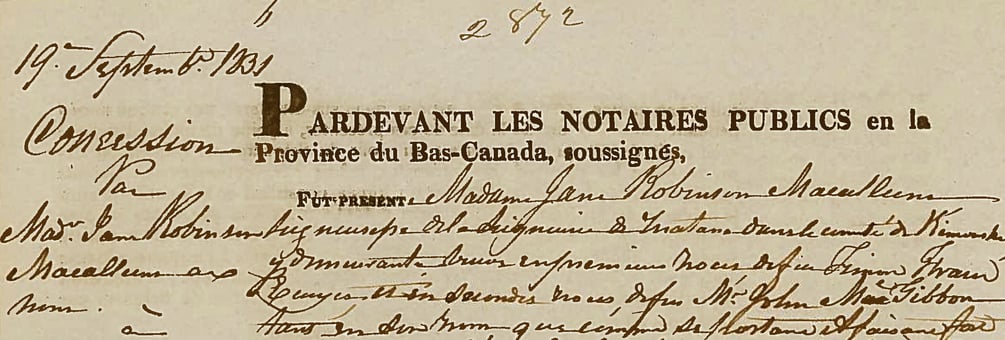 2872
19e Septembr. 1831
Concession
Par
Madr. Jane Robinson
Macallum
nom.
à
PARDEVANT LES NOTAIRES PUBLICS en la
Province du Bas-Canada, soussignés,
FUT-PRESENTE Madame Jane Robinson Macallum
Seigneuresse de la Seigneurie de Matane dans le comté de
y demeurante Veuve en premieres noces de feu Simon
et en secondes noces de feu Mr. John MacGibbon
tant en son nom que comme se portant et faisant fort